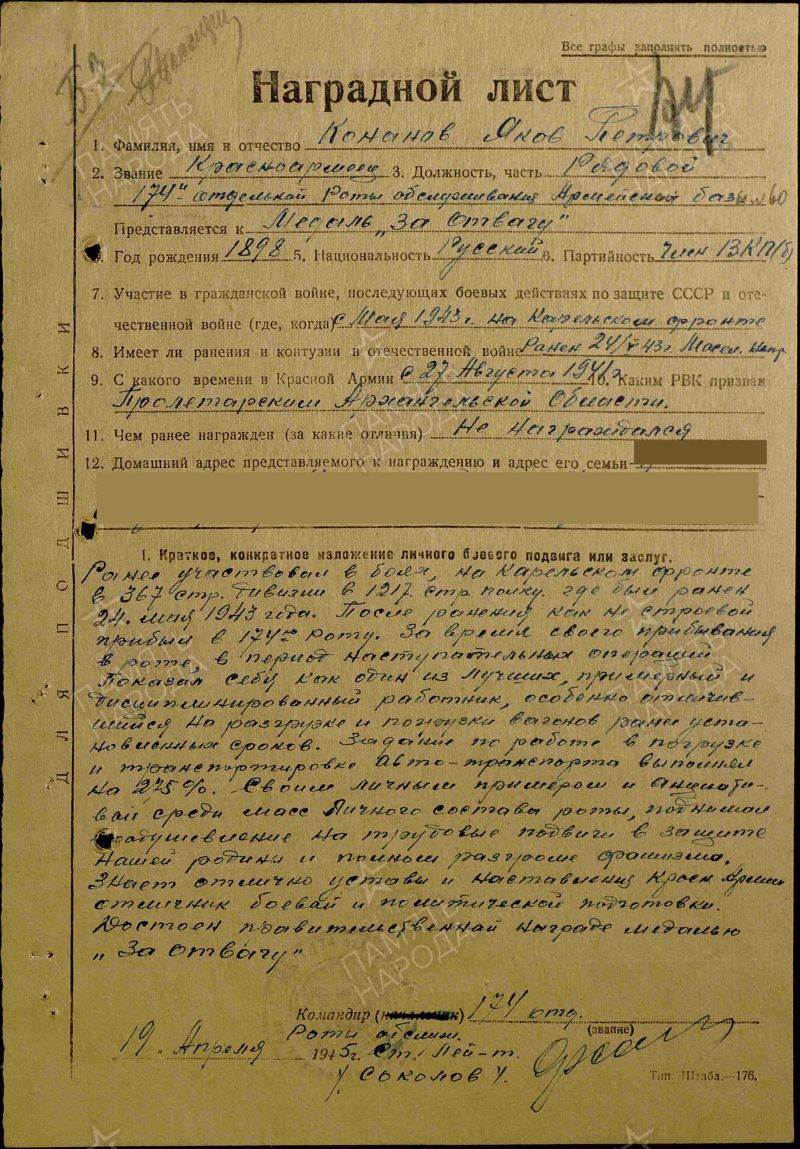 Все графы заполнять полностью
Б7
Наградной лист
1. Фамилия, имя и отчество Кононов Яков Петрович
2. Звание Красноармеец 3. Должность, часть Рядовой
174й отдельной Роты обслуживания Армейской базы №60
Представляется к Медаль „За отвагу"
Год рождения 1898 5. Национальность Русский 6. Партийность Член ВКП(б)
7. Участие в гражданской войне, последующих боевых действиях по защите СССР и оте-
чественной войне (где, когда) с Мая 1943г. на Карельском фронте
8. Имеет ли ранения и контузии в отечественной войне Ранен 24/V 43г Масел. напр.
9. С какого времени в Красной Армии с 27. Августа 1941г. 10. Каким РВК призван
Пролетарским Архангельской Области.
11. Чем ранее награжден (за какие отличия) Не награждался
12. Домашний адрес представляемого к награждению и адрес его семьи
I. Краткое, конкретное изложение личного боевого подвига или заслуг.
Ранее участвовал в боях, на Карельском фронте
в 367 стр. дивизии в 1217 стр. полку. где был ранен
24. мая 1943 года. После ранения как не строевой
прибыл в 174ю роту. За время своего прибывания
в роте, в период наступательных операций
Показал себя как один из лучших, примерный и
дисциплинированный работник, особенно отличив-
шийся на разгрузке и погрузки вагонов ранее уста-
новленных сроков. Задание по работе в погрузке
и транспортировке Авто-транспорта выполнял
на 275%. Своим личным примером и анциати-
вой среди масс Личного состава роты, поднимал
воодушевление на трудовые подвиги в защите
нашей родины и полном разгроме фашизма.
Знает отлично уставы и наставления Красн Армии
отличник боевой и политической подготовки.
Достоен правительственной награде медалью
„За отвагу"
Командир (начальник) 174 отд.
(звание)
Роты обслуж.
19 Апреля 1945г. Ст. Лей-т.
/ Соколов /.
Тип. Штаба.—176.
ДЛЯ ПОДШИВКИ
ПАМЯТЬ НАРОДА